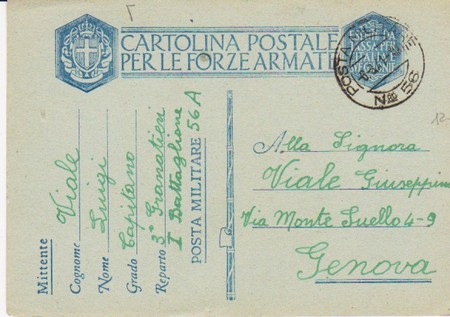 CARTOLINA POSTALE
PER LE FORZE ARMATE
POSTA MILITARE
Nº 56
Mittente
Cognome Viale
Nome Luigi
Grado Capitano
Reparto 3° Granatieri
I Battaglione
POSTA MILITARE 56 A
Alla Signora
Viale Giuseppina
Via Monte Suello 4-9
Genova